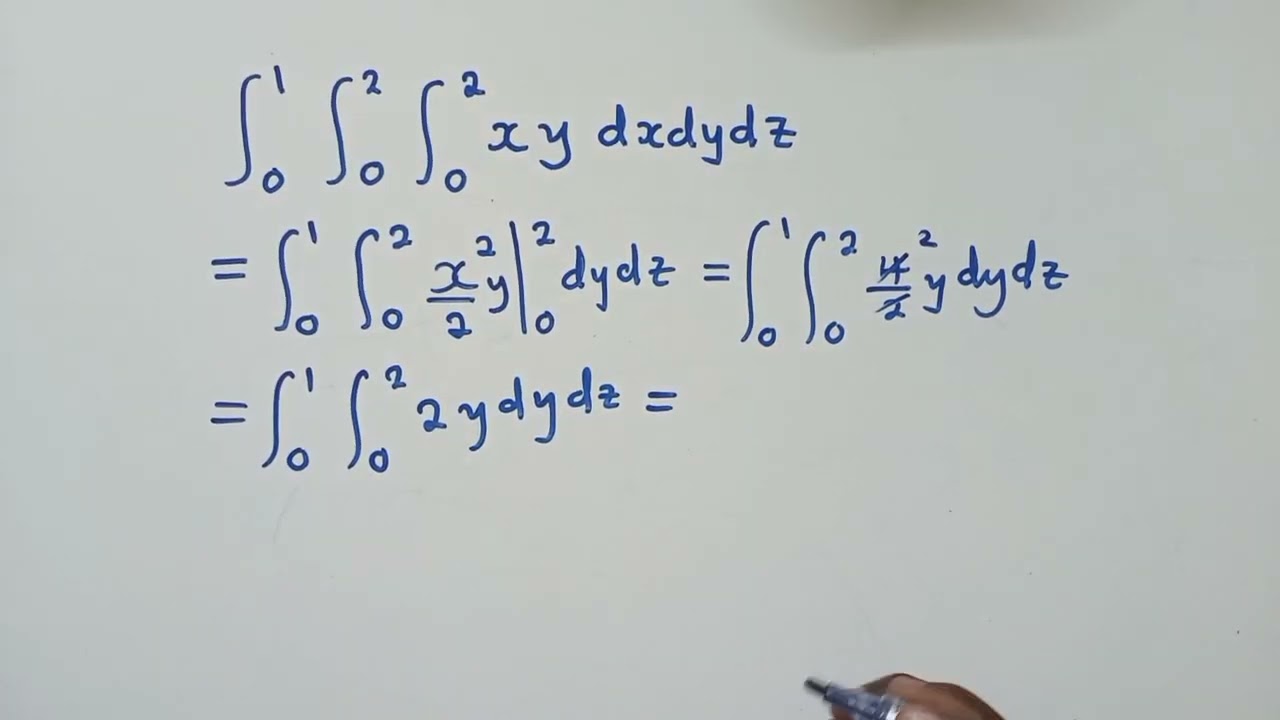 ∫₀¹ ∫₀² ∫₀² x y dxdydz
= ∫₀¹ ∫₀² x²/2 y |₀² dydz = ∫₀¹ ∫₀² 4/2 ² y dydz
= ∫₀¹ ∫₀² 2 y dydz =